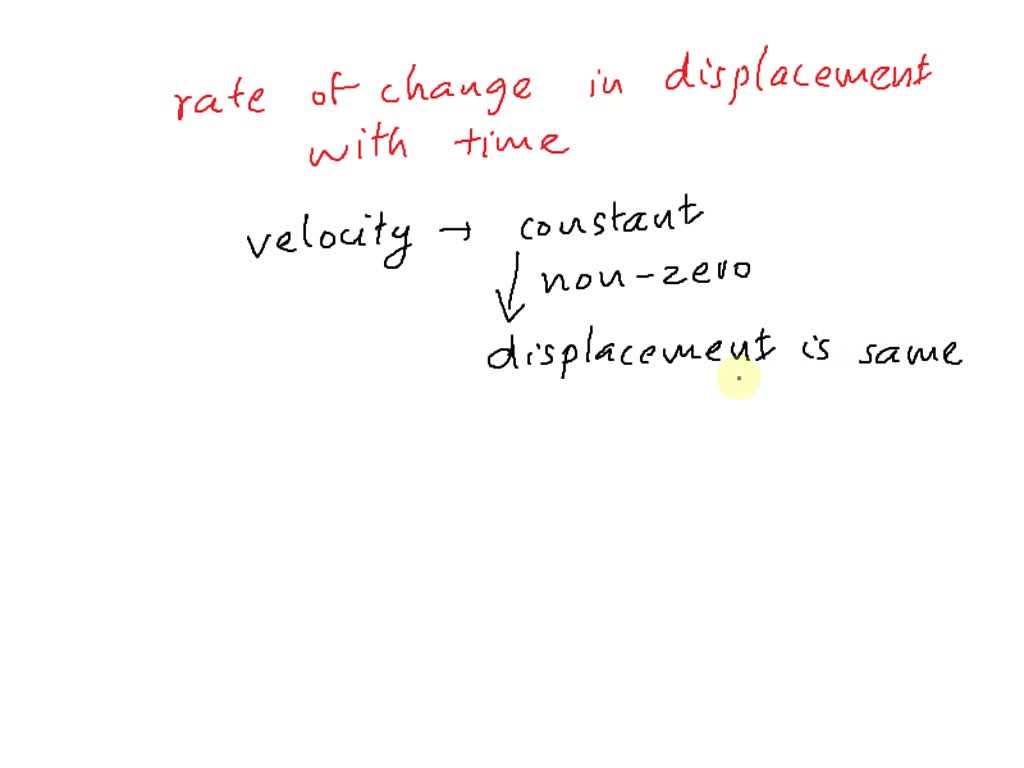 rate of change in displacement
with time
velocity → constant
non-zero
displacement is same